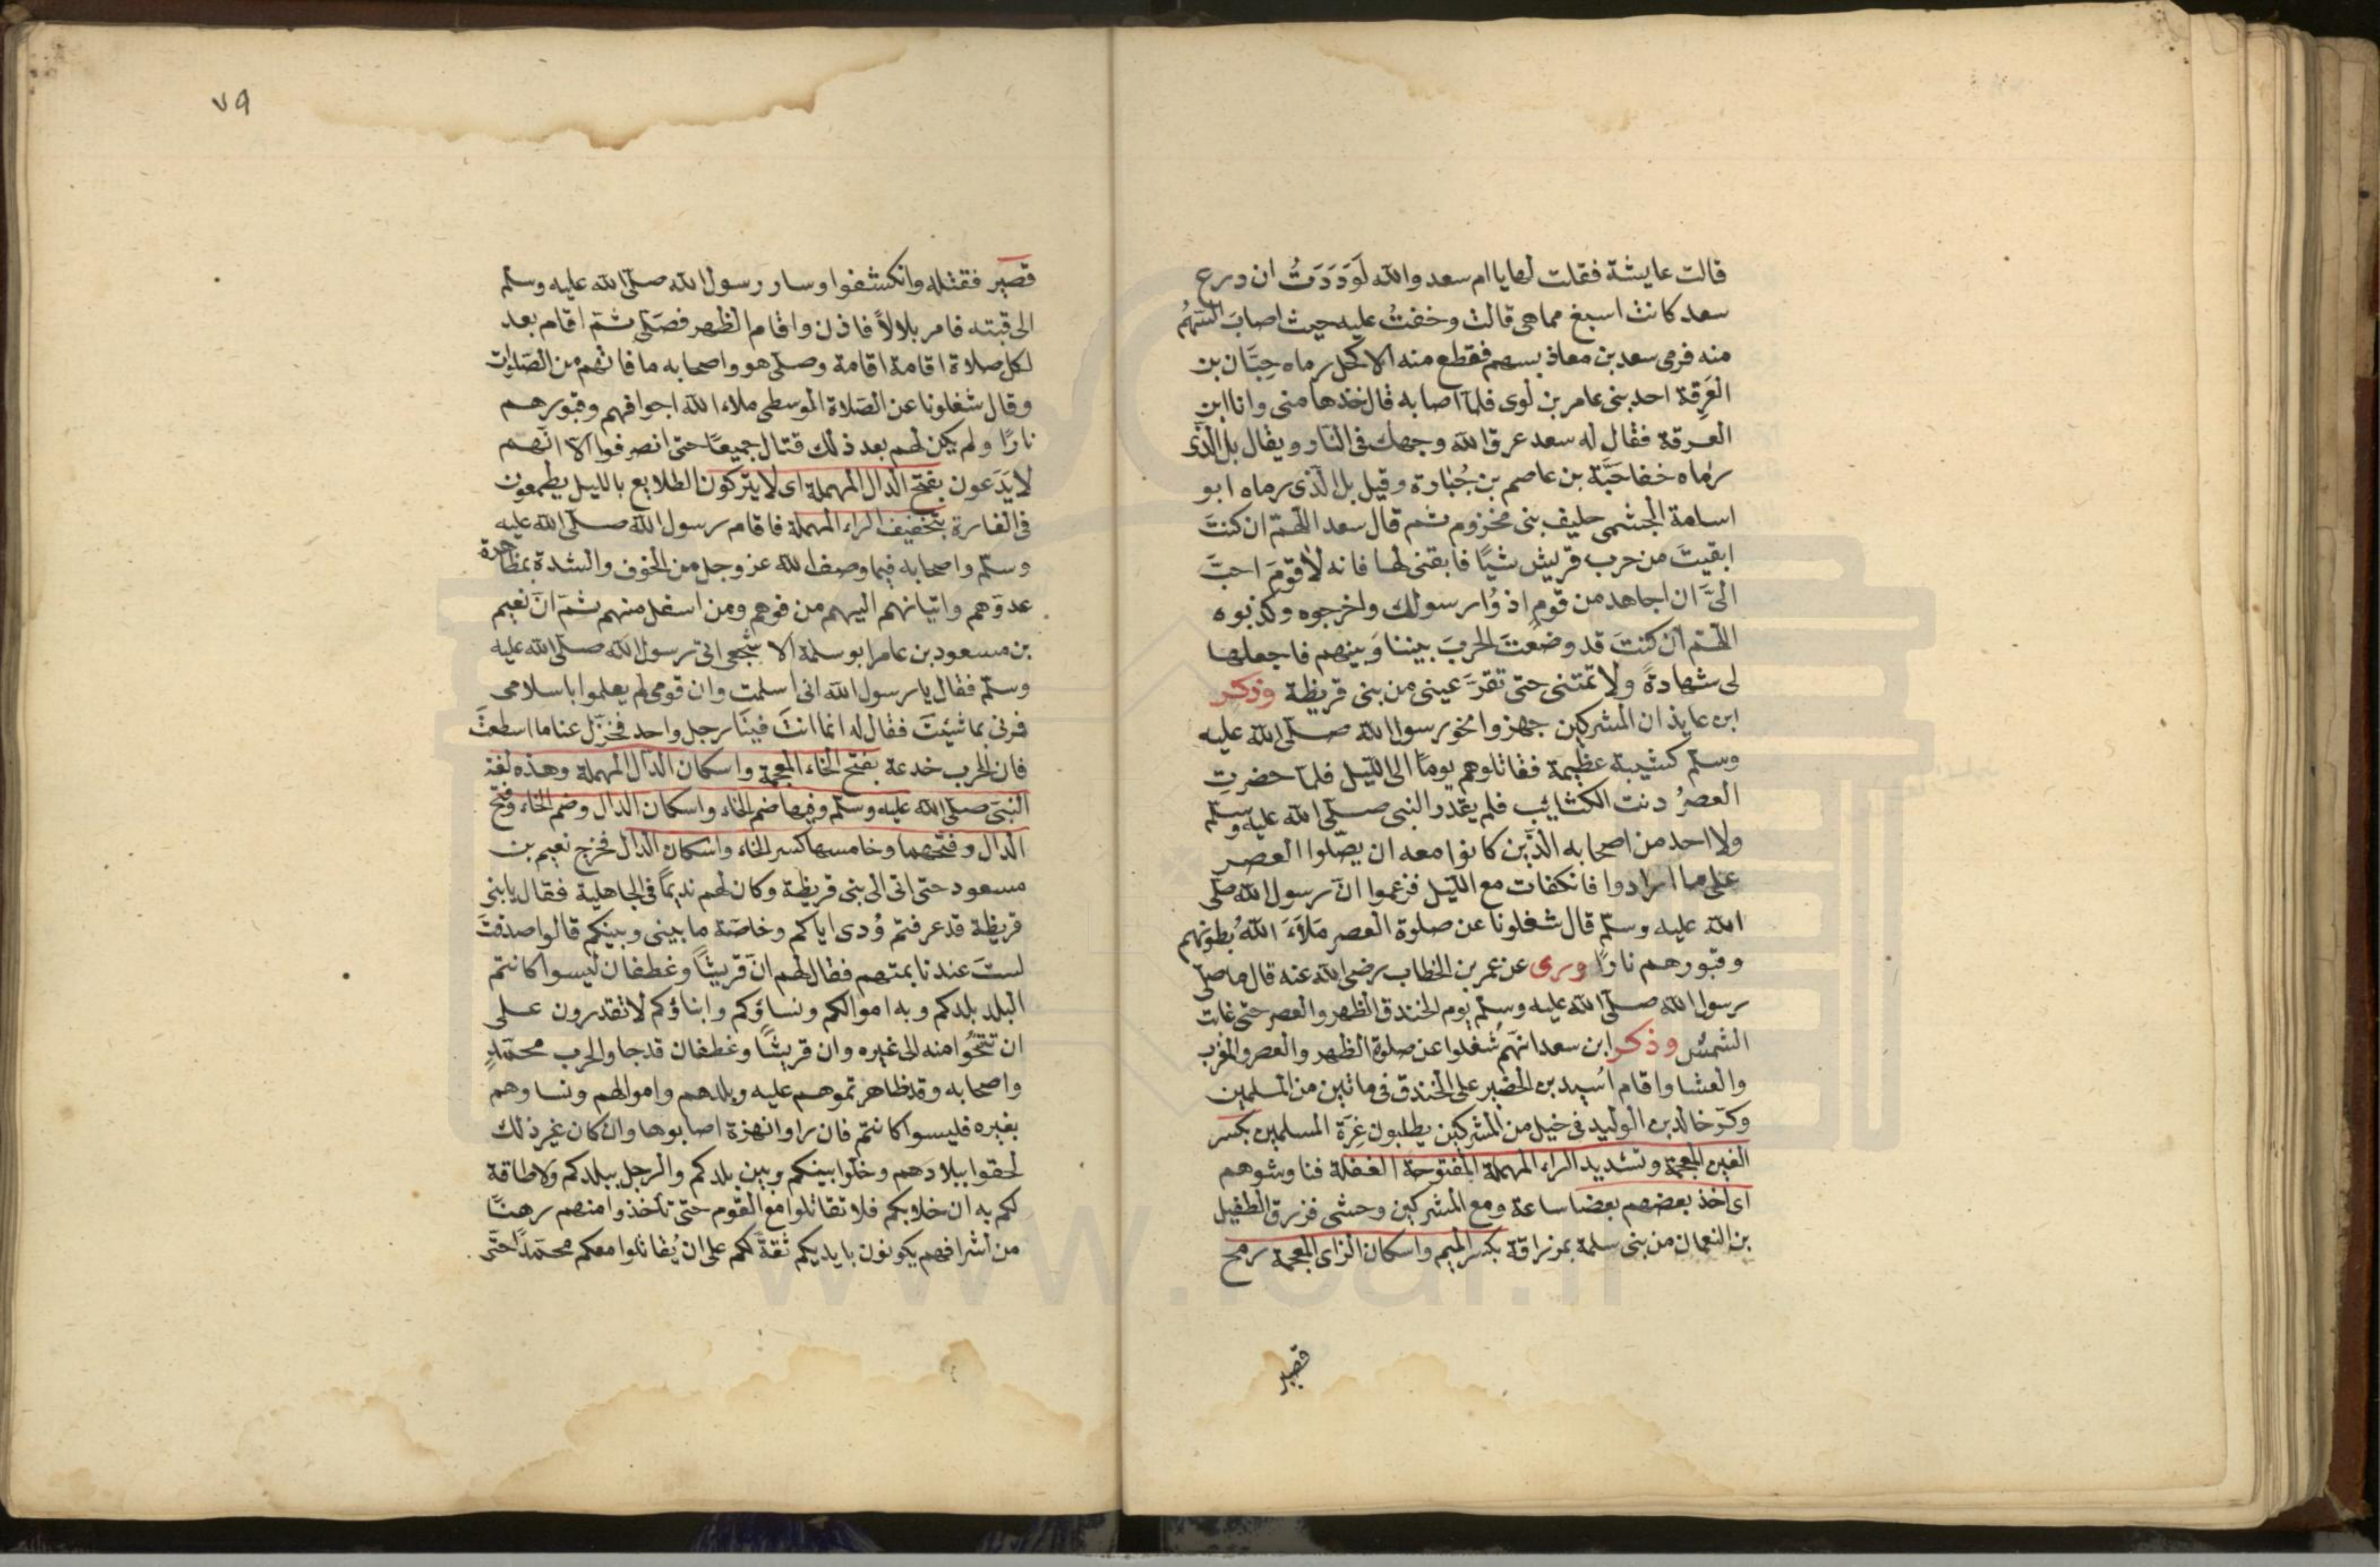 قالت عايشة فقلت لها يا ام سعد والله لَوَدَدَتُ ان درع
سعد كانت اسبغ مما هى قالت وخفتُ عليه حيث اصابَ السّهمُ
منه فرمى سعد بن معاذ بسهم فقطع منه الاكحل رماه حِبَّان بن
العَرِقة احد بنى عامر بن لوى فلمّا اصابه قال خذها منى وانا ابن
العرقة فقال له سعد عرق الله وجهك فى النار ويقال بل الّذى
رماه خفاجَّة بن عاصم بن جُبارة وقيل بل الّذى رماه ابو
اسامة الجشمى حليف بنى مخزوم ثم قال سعد اللّهمّ ان كنتَ
ابقيتَ من حرب قريش شيًا فابقنى لها فانه لا قومَ احبَّ
الىَّ ان اجاهد من قوم اذوْا رسولك واخرجوه وكذبوه
اللّهمّ ان كنتَ قد وضعْتَ الحربَ بيننا وَبينهم فاجعلها
لى شهادةً ولا تمتنى حتى تقرَّ عينى من بنى قريظة وذكر
ابن عايذ ان المشركين جهزوا نحو رسول الله صلّى الله عليه
وسلّم كتيبة عظيمة فقاتلوهم يومًا الى اللّيل فلمّا حضرتِ
العصرُ دنت الكتائب فلم يقدر النبى صلّى الله عليه وسلّم
ولا احد من اصحابه الّذين كانوا معه ان يصّلوا العصر
على ما ارادوا فانكفات مع اللّيل فزعموا انّ رسول الله صلّى
الله عليه وسلّم قال شغلونا عن صلوة العصر مَلَأَ اللهُ بُطونهم
وقبورهم نارًا وروى عن عمر بن الخطاب رضى الله عنه قال ما صلّى
رسول الله صلّى الله عليه وسلّم يوم الخندق الظهر والعصر حتى غابت
الشمس وذكر ابن سعد انهّم شُغلوا عن صلوة الظهر والعصر والمغرب
والعشا واقام اُسيد بن الحضير على الخندق فى مائتين من المسلمين
وكرّ خالد بن الوليد فى خيل من المشركين يطلبون غِرّة المسلمين بكسر
الغين المعجمة وتشديد الراء المهملة المفتوحة الغفلة فناوشوهم
اى اخذ بعضهم بعضا ساعة ومع المشركين وحشى فزرق الطفيل
بن النعمان من بنى سلمة بمزراقة بكسر الميم واسكان الزاى المعجمة رمح
قصير
٧٩
قصير فقتله وانكشفوا وسار رسول الله صلّى الله عليه وسلّم
الى قبته فامر بلالاً فاذن واقام الظهر فصَلّى ثمّ اقام بعد
لكل صلاة اقامة اقامة وصلّى هو واصحابه ما فاتهم من الصّلوات
وقال شغلونا عن الصّلاة الوسطى ملاء الله اجوافهم وقبورهم
نارًا ولم يكن لهم بعد ذلك قتال جميعًا حتى انصرفوا الّا انّهم
لا يَدَعون بفتح الدال المهملة اى لا يتركون الطلايع بالليل يطمعون
فى الغارة بتخفيف الراء المهملة فاقام رسول الله صلّى الله عليه
وسلّم واصحابه فيما وصف الله عز وجل من الخوف والشدة بمظاهرة
عدوّهم واتيانهم اليهم من فوقهم ومن اسفل منهم ثمّ انّ نعيم
بن مسعود بن عامر ابو سلمة الاشجعى اتى رسول الله صلّى الله عليه
وسلّم فقال يا رسول الله انى اسلمت وان قومى لم يعلموا باسلامى
فمرنى بما شيئت فقال له انما انتَ فينَا رجل واحد فخزّل عنا ما اسطعتَ
فان الحرب خدعة بفتح الخاء المعجمة واسكان الدال المهملة وهذه لغة
النبىّ صلّى الله عليه وسلّم وفيها ضم الخاء واسكان الدال وضم الخاء وفتح
الدال وفتحهما وخامسها كسر الخاء واسكان الدال فخرج نعيم بن
مسعود حتى اتى الى بنى قريظة وكان لهم نديمًا فى الجاهلية فقال يا بنى
قريظة قد عرفتم وُدى اياكم وخاصّة ما بينى وبينكم قالوا صدقتَ
لستَ عندنا بمتهم فقال لهم انّ قريشًا وغطفان ليسوا كانتم
البلد بلدكم وبه اموالكم ونساؤكم وابناؤكم لا تقدرون على
ان تتحّوا منه الى غيره وان قريشًا وغطفان قد جا والحرب محمّدٍ
واصحابه وقد ظاهرتموهم عليه وبلدهم واموالهم ونساوهم
بغيره فليسوا كانتم فان راوا نهزة اصابوها وان كان غير ذلك
لحقوا ببلادهم وخلّوا بينكم وبين بلدكم والرجل ببلدكم ولا طاقة
لكم به ان خلا بكم فلا تقاتلوا مع القوم حتى تأخذوا منهم رهنًا
من اشرافهم يكونون بايديكم ثقةً لكم على ان يُقاتلوا معكم محمّدًا حتّى